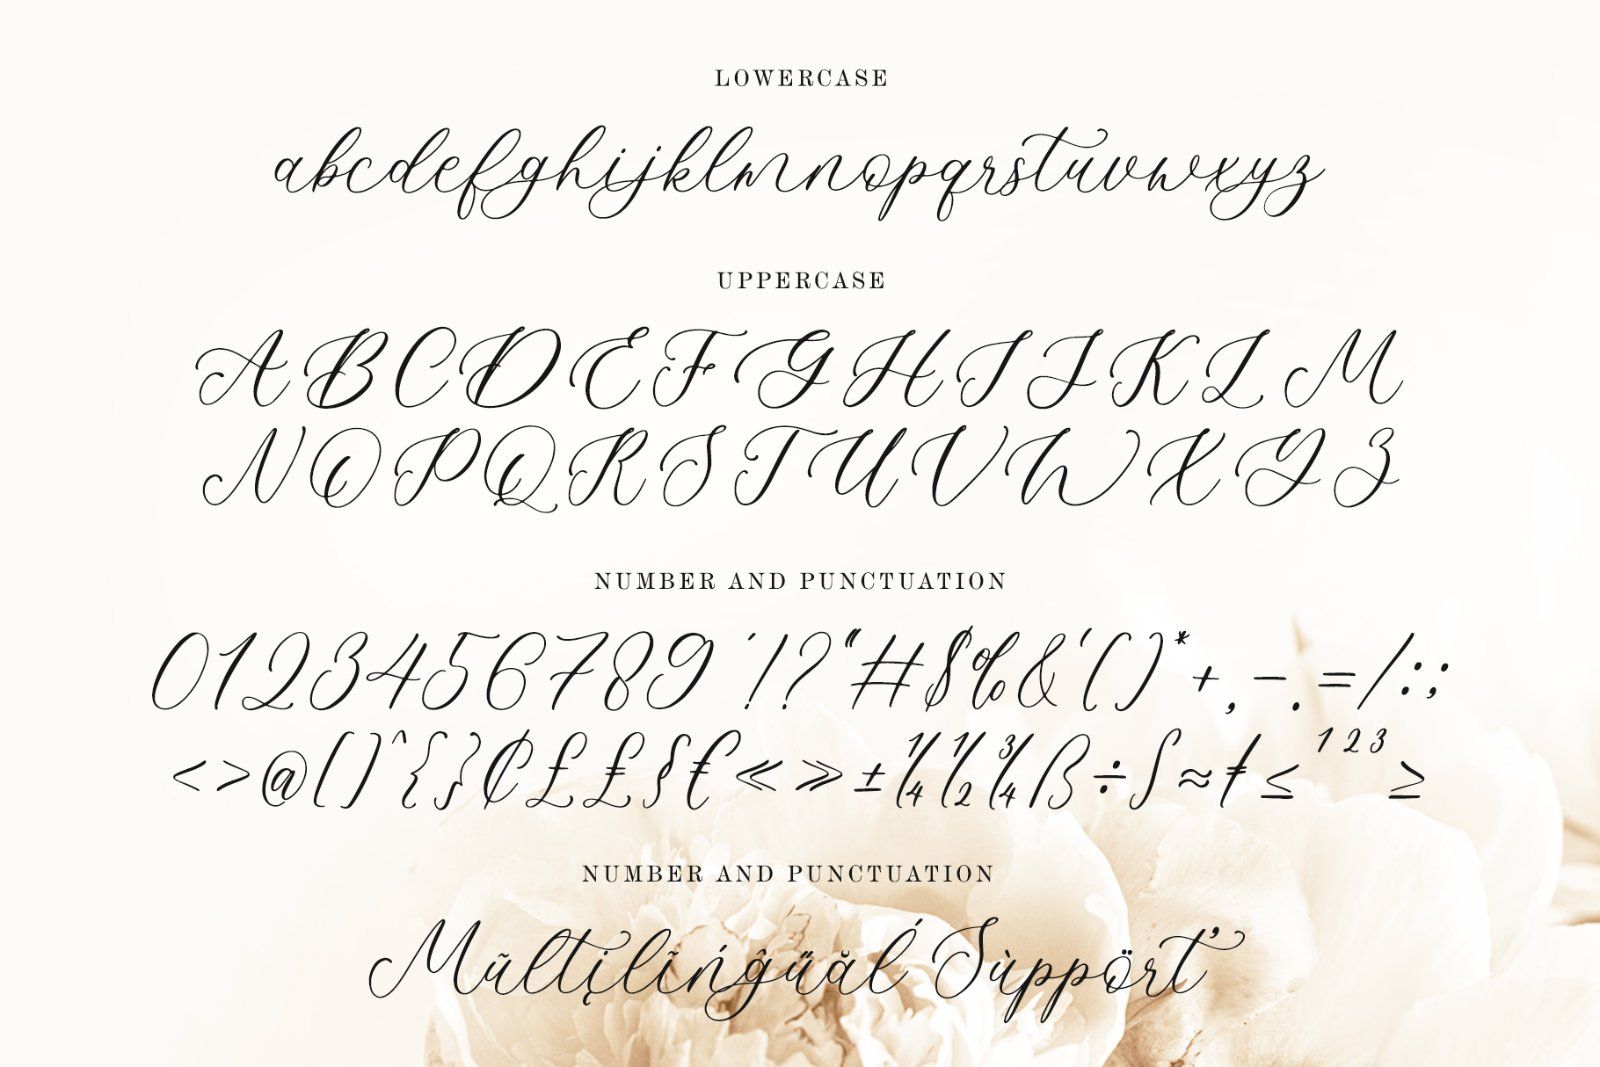 LOWERCASE
abcdefghijklmnopqrstuvwxyz
UPPERCASE
ABCDEFGHIJKLM
NOPQRSTUVWXYZ
NUMBER AND PUNCTUATION
0123456789'!?"#$%&'()*+,-.=/:;
<>@[]^{}₵£₤§€«»±¼½¾ß÷∫≈ŧ≤¹²³≥
NUMBER AND PUNCTUATION
Mũltįlĩńĝűăĺ Sùppörť